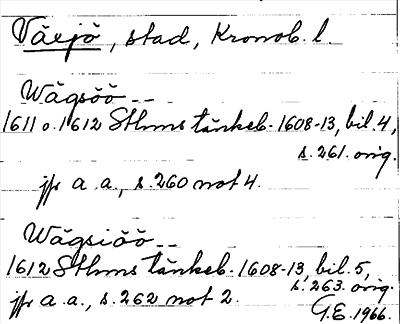 Växjö, stad, Kronob. l.
Wägsöö --
1611 o. 1612 Sthms tänkeb. 1608-13, bil. 4,
s. 261. orig.
jfr a. a., s. 260 not 4.
Wägsiöö --
1612 Sthms tänkeb. 1608-13, bil. 5,
s. 263. orig.
jfr a. a., s. 262 not 2.
G.E. 1966.